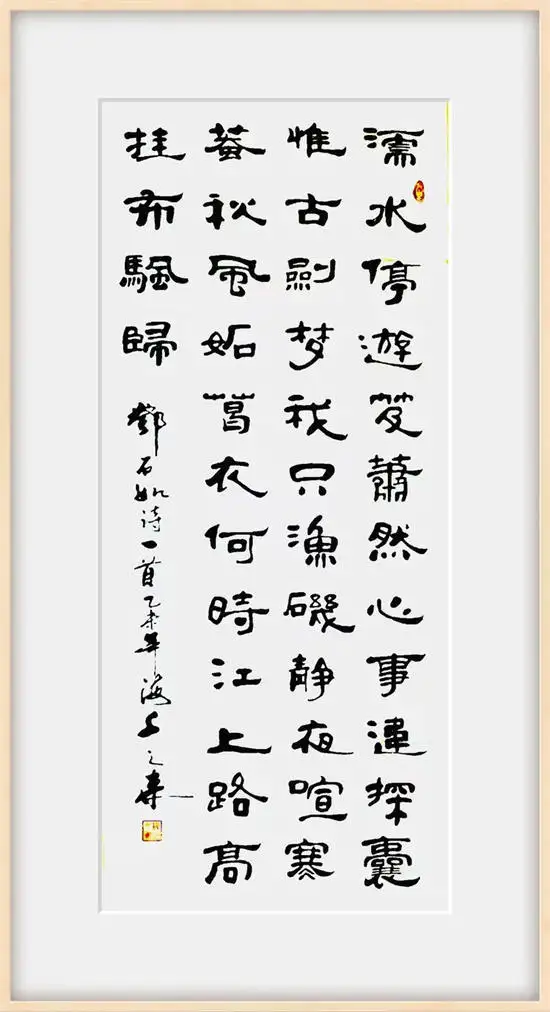 濡水停遊笈蕭然心事違探囊
惟古劍梦我只漁磯静夜喧寒
蛬秋風妬葛衣何時江上路高
挂布颿歸
鄧石如诗一首乙未年海上之